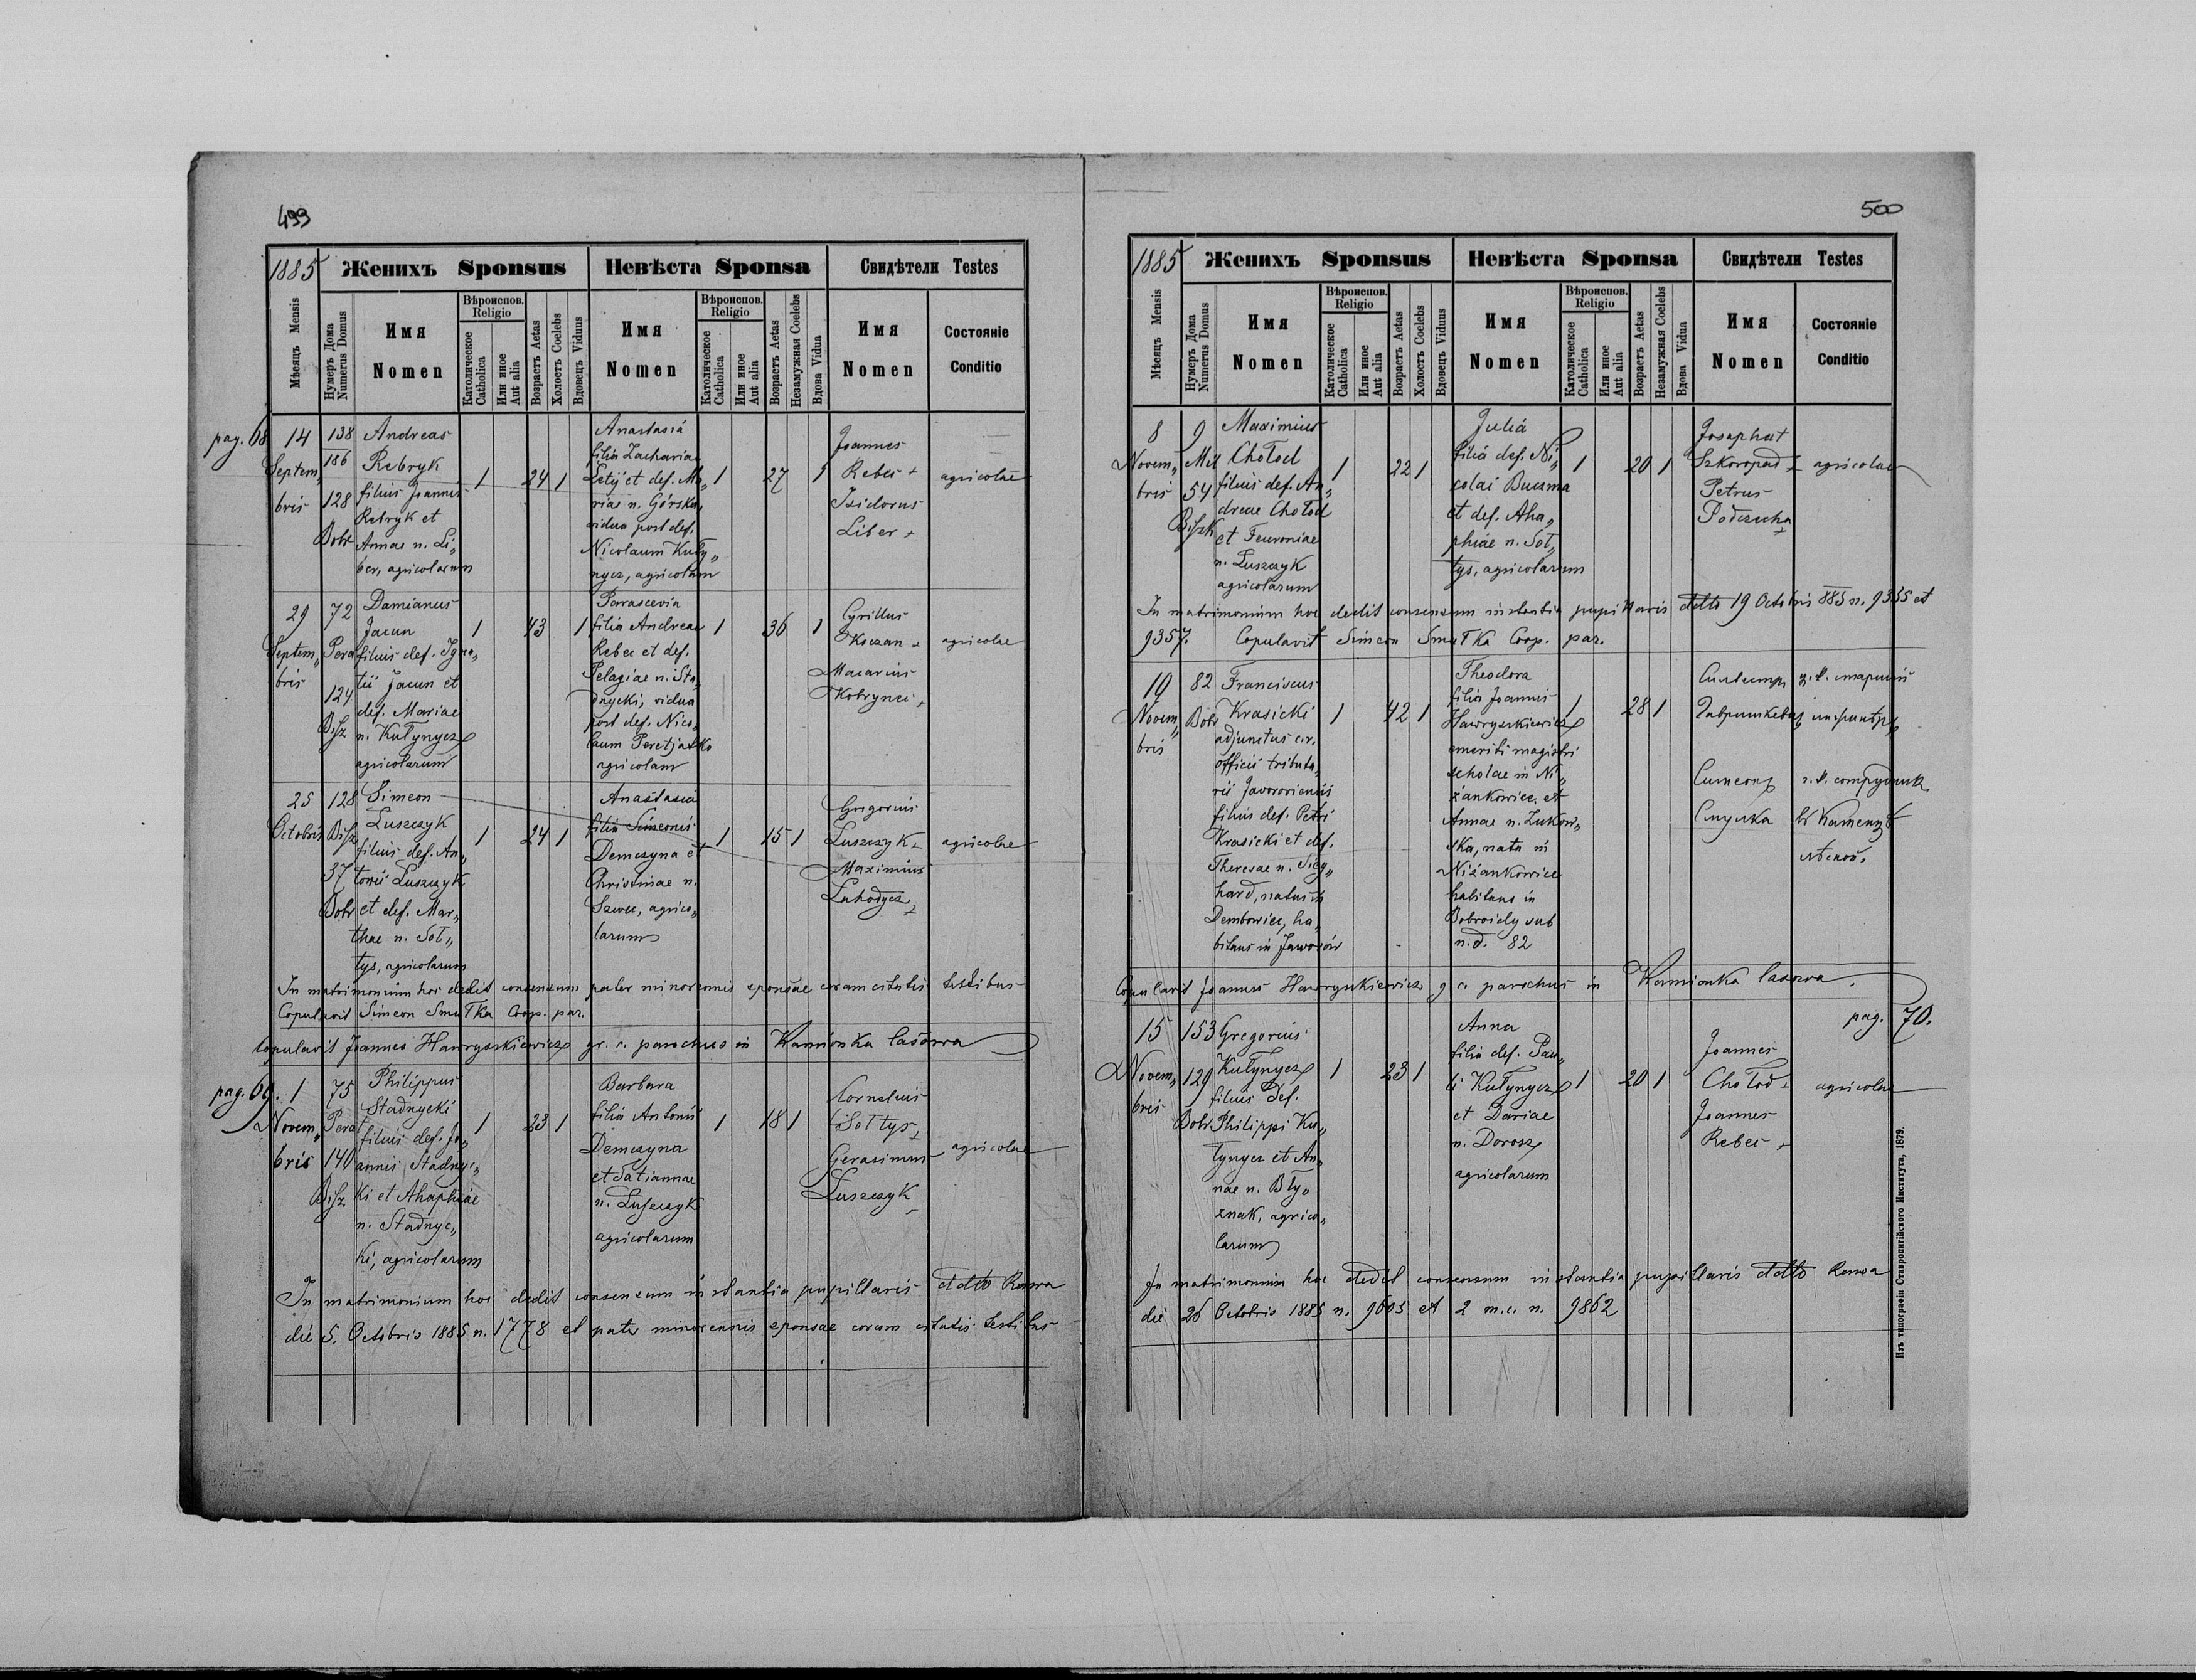 499
1885 Женихъ Sponsus Невѣста Sponsa Свидѣтели Testes
Мѣсяцъ Mensis
Нумеръ Дома Numerus Domus
Имя Nomen
Вѣроиспов. Religio
Католическое Catholica
Или иное Aut alia
Возрастъ Aetas
Холостъ Coelebs
Вдовецъ Viduus
Имя Nomen
Вѣроиспов. Religio
Католическое Catholica
Или иное Aut alia
Возрастъ Aetas
Незамужная Coelebs
Вдова Vidua
Имя Nomen
Состояніе Conditio
pag. 68
14
Septem„
bris
138
186
128
Dobr
Andreas
Rebryk
filius Joannis
Rebryk et
Annae n. Li„
ber, agricolarum
1 24 1
Anastasia
filia Zachariae
Letij et def. Ma„
riae n. Górska,
vidua post def.
Nicolaum Kuły„
nycz, agricolam
1 27 1
Joannes
Rebec +
Isidorus
Liber +
agricolae
29
Septem„
bris
72
Perat
124
Bisz
Damianus
Jacun
filius def. Igna„
tii Jacun et
def. Mariae
n. Kułynycz
agricolarum
1 43 1
Parascevia
filia Andreae
Rebec et def.
Pelagiae n. Sta„
dnycki, vidua
post def. Nico„
laum Peretjatko
agricolam
1 36 1
Cyrillus
Koczan +
Macarius
Kobryn +
agricolae
25
Octobris
128
Bisz
37
Dobr
Simeon
Łuszczyk
filius def. An„
tonii Łuszczyk
et def. Mar„
thae n. Soł„
tys, agricolarum
1 24 1
Anastasia
filia Simeonis
Demczyna et
Christinae n.
Szwec, agrico„
larum
1 15 1
Grigorius
Łuszczyk +
Maximius
Łahodycz +
agricolae
In matrimonium hoc dedit consensum pater minorennis sponsae coram citatis testibus
Copulavit Simeon Smułka Coop. par.
Copulavit Joannes Hawryszkiewicz gr. c. parochus in Kamionka lasowa
pag. 69.
1
Novem„
bris
75
Perat
140
Bisz
Philippus
Stadnycki
filius def. Jo„
annis Stadnyc„
ki et Ahaphiae
n. Stadnyc„
ki, agricolarum
1 23 1
Barbara
filia Antonii
Demczyna
et Tatiannae
n. Łuszczyk
agricolarum
1 18 1
Cornelius
Sołtys +
Gerasimus
Łuszczyk
agricolae
In matrimonium hoc dedit consensum instantia pupillaris ddto Rawa
die 5. Octobris 1885 n. 1778 et pater minorennis sponsae coram citatis testibus
500
1885 Женихъ Sponsus Невѣста Sponsa Свидѣтели Testes
Мѣсяцъ Mensis
Нумеръ Дома Numerus Domus
Имя Nomen
Вѣроиспов. Religio
Католическое Catholica
Или иное Aut alia
Возрастъ Aetas
Холостъ Coelebs
Вдовецъ Viduus
Имя Nomen
Вѣроиспов. Religio
Католическое Catholica
Или иное Aut alia
Возрастъ Aetas
Незамужная Coelebs
Вдова Vidua
Имя Nomen
Состояніе Conditio
8
Novem„
bris
9
Mił
54
Biszk
Maximius
Chołod
filius def. An„
dreae Chołod
et Feuroniae
n. Łuszczyk
agricolarum
1 22 1
Julia
filia def. Ni„
colai Buczma
et def. Aha„
phiae n. Soł„
tys, agricolarum
1 20 1
Josaphat
Szkoropad +
Petrus
Podczecha +
agricolae
In matrimonium hoc dedit consensum instantia pupillaris ddto 19 Octobris 885 n. 9355 et
9357. Copulavit Simeon Smułka Coop. par.
19
Novem„
bris
82
Dobr
Franciscus
Krasicki
adjunctus c.r.
officii tributa„
rii Javoroviensis
filius def. Petri
Krasicki et def.
Theresae n. Sieg„
hard, natus in
Dembowiec, ha„
bitans in Jaworów
1 42 1
Theodora
filia Joannis
Hawryszkiewicz
emeriti magistri
scholae in Ni„
żankowice et
Annae n. Zukow„
ska, nata in
Niżankowice
habitans in
Dobrosidy sub
n.d. 82
1 28 1
Сильвестръ
Гавришкевичъ
Симеонъ
Смулка
ц. к. старшій
инжинѣръ
г. к. сотрудникъ
въ Каменцѣ
лѣсной.
Copulavit Joannes Hawryszkiewicz g. c. parochus in Kamionka lasowa.
pag. 70.
15
Novem„
bris
153
129
Dobr
Gregorius
Kułynycz
filius def.
Philippi Ku„
łynycz et An„
nae n. Bły„
znak, agrico„
larum
1 23 1
Anna
filia def. Pau„
li Kułynycz
et Dariae
n. Dorosz
agricolarum
1 20 1
Joannes
Chołod +
Joannes
Rebec +
agricolae
In matrimonium hoc dedit consensum instantia pupillaris ddto Rawa
die 26 Octobris 1885 n. 9605 et 2 m.c. n. 9862
Изъ типографіи Ставропигійского Института, 1879.